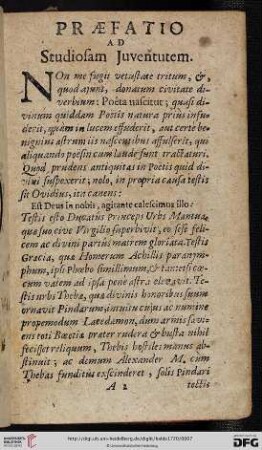 PRÆFATIO
AD
Studiosam Juventutem.
NOn me fugit vetustate tritum, &,
quod ajunt, donatum civitate di-
verbium: Poëta nascitur; quasi di-
vinum quiddam Poëtis natura prius infu-
derit, quàm in lucem effuderit, aut certè be-
nignius astrum iis nascentibus affulserit, qui
aliquando poësin cum laude sunt tractaturi.
Quod prudens antiquitas in Poëtis quid di-
vini suspexerit, nolo, in propria causa testis
sit Ovidius, ita canens:
Est Deus in nobis, agitante calescimus illo:
Testis esto Ducatûs Princeps Urbs Mantua,
quæ suo cive Virgilio superbivit, eo sese feli-
cem ac divini partûs matrem gloriata. Testis
Græcia, quæ Homerum Achillis paranym-
phum, ipsi Phœbo simillimum, & tantosi cœ-
cum vatem ad ipsa penè astra elevavit. Te-
stis urbs Thebæ, quæ divinis honoribus suum
ornavit Pindarum, intuitu cujus ac numine
propemodum Lacedæmon, dum armis sævi-
ens toti Bœotiæ præter rudera & busta nihil
fecisset reliquum, Thebis hostiles manus ab-
stinuit; ac demum Alexander M. cum
Thebas funditus exscinderet, solis Pindari
A 2
tectis
http://digi.ub.uni-heidelberg.de/diglit/
© Universitätsbibliothek Heidelberg
DFG